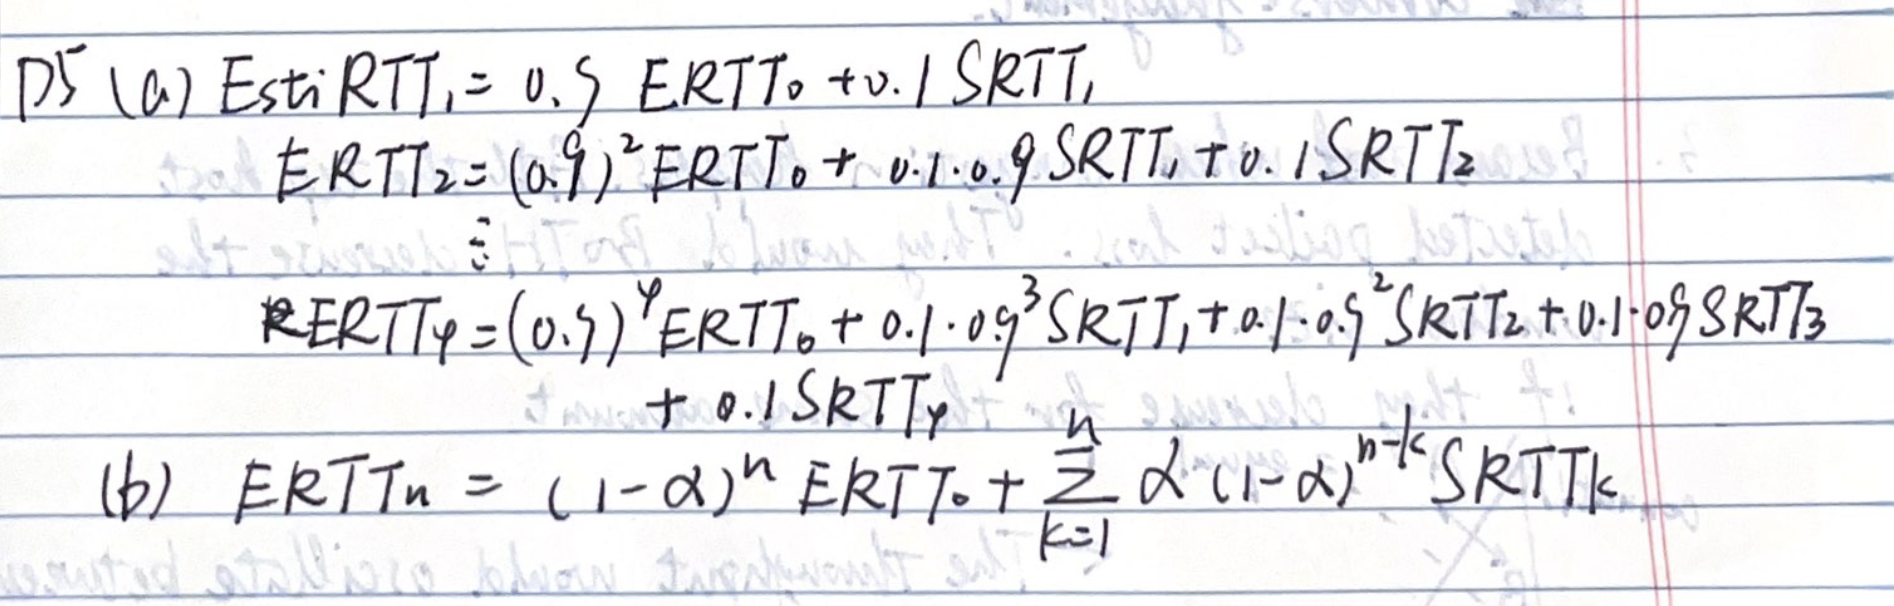 P5 (a) EstiRTT₁ = 0.9 ERTT₀ + 0.1 SRTT₁
ERTT₂ = (0.9)² ERTT₀ + 0.1·0.9 SRTT₁ + 0.1 SRTT₂
⋮
ERTT₄ = (0.9)⁴ ERTT₀ + 0.1·0.9³ SRTT₁ + 0.1·0.9² SRTT₂ + 0.1·0.9 SRTT₃
+ 0.1 SRTT₄
(b) ERTTn = (1-α)ⁿ ERTT₀ + ∑_{k=1}^{n} α(1-α)^{n-k} SRTTk